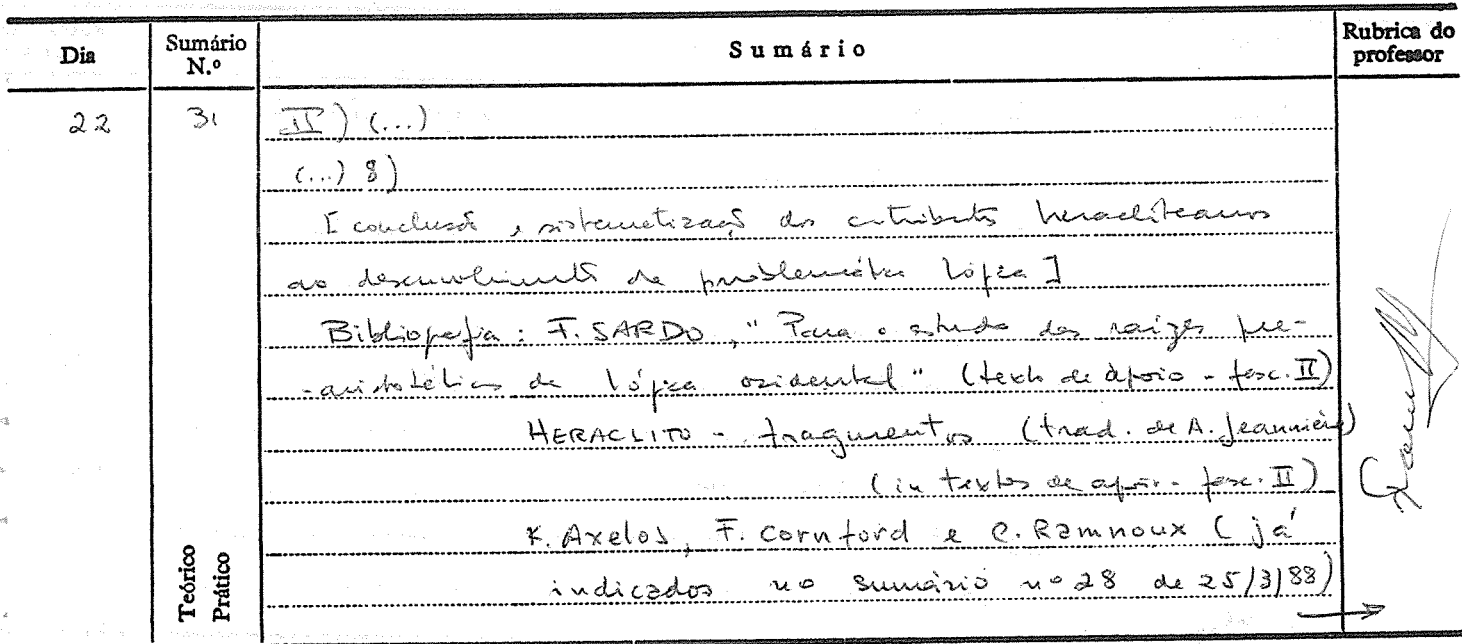 Dia
Sumário N.º
Sumário
Rubrica do professor
22
31
II) (...)
(...) 8)
[conclusão e sistematização dos contributos heracliteanos
ao desenvolvimento da problemática lógica]
Bibliografia: F. SARDO, "Para o estudo das raízes pré-
-aristotélicas da lógica ocidental" (texto de apoio - fasc. II)
HERACLITO - fragmentos (trad. de A. Jeannière)
(in textos de apoio - fasc. II)
K. Axelos, F. Cornford e C. Ramnoux (já
indicados no sumário nº 28 de 25/3/88)
Teórico
Prático